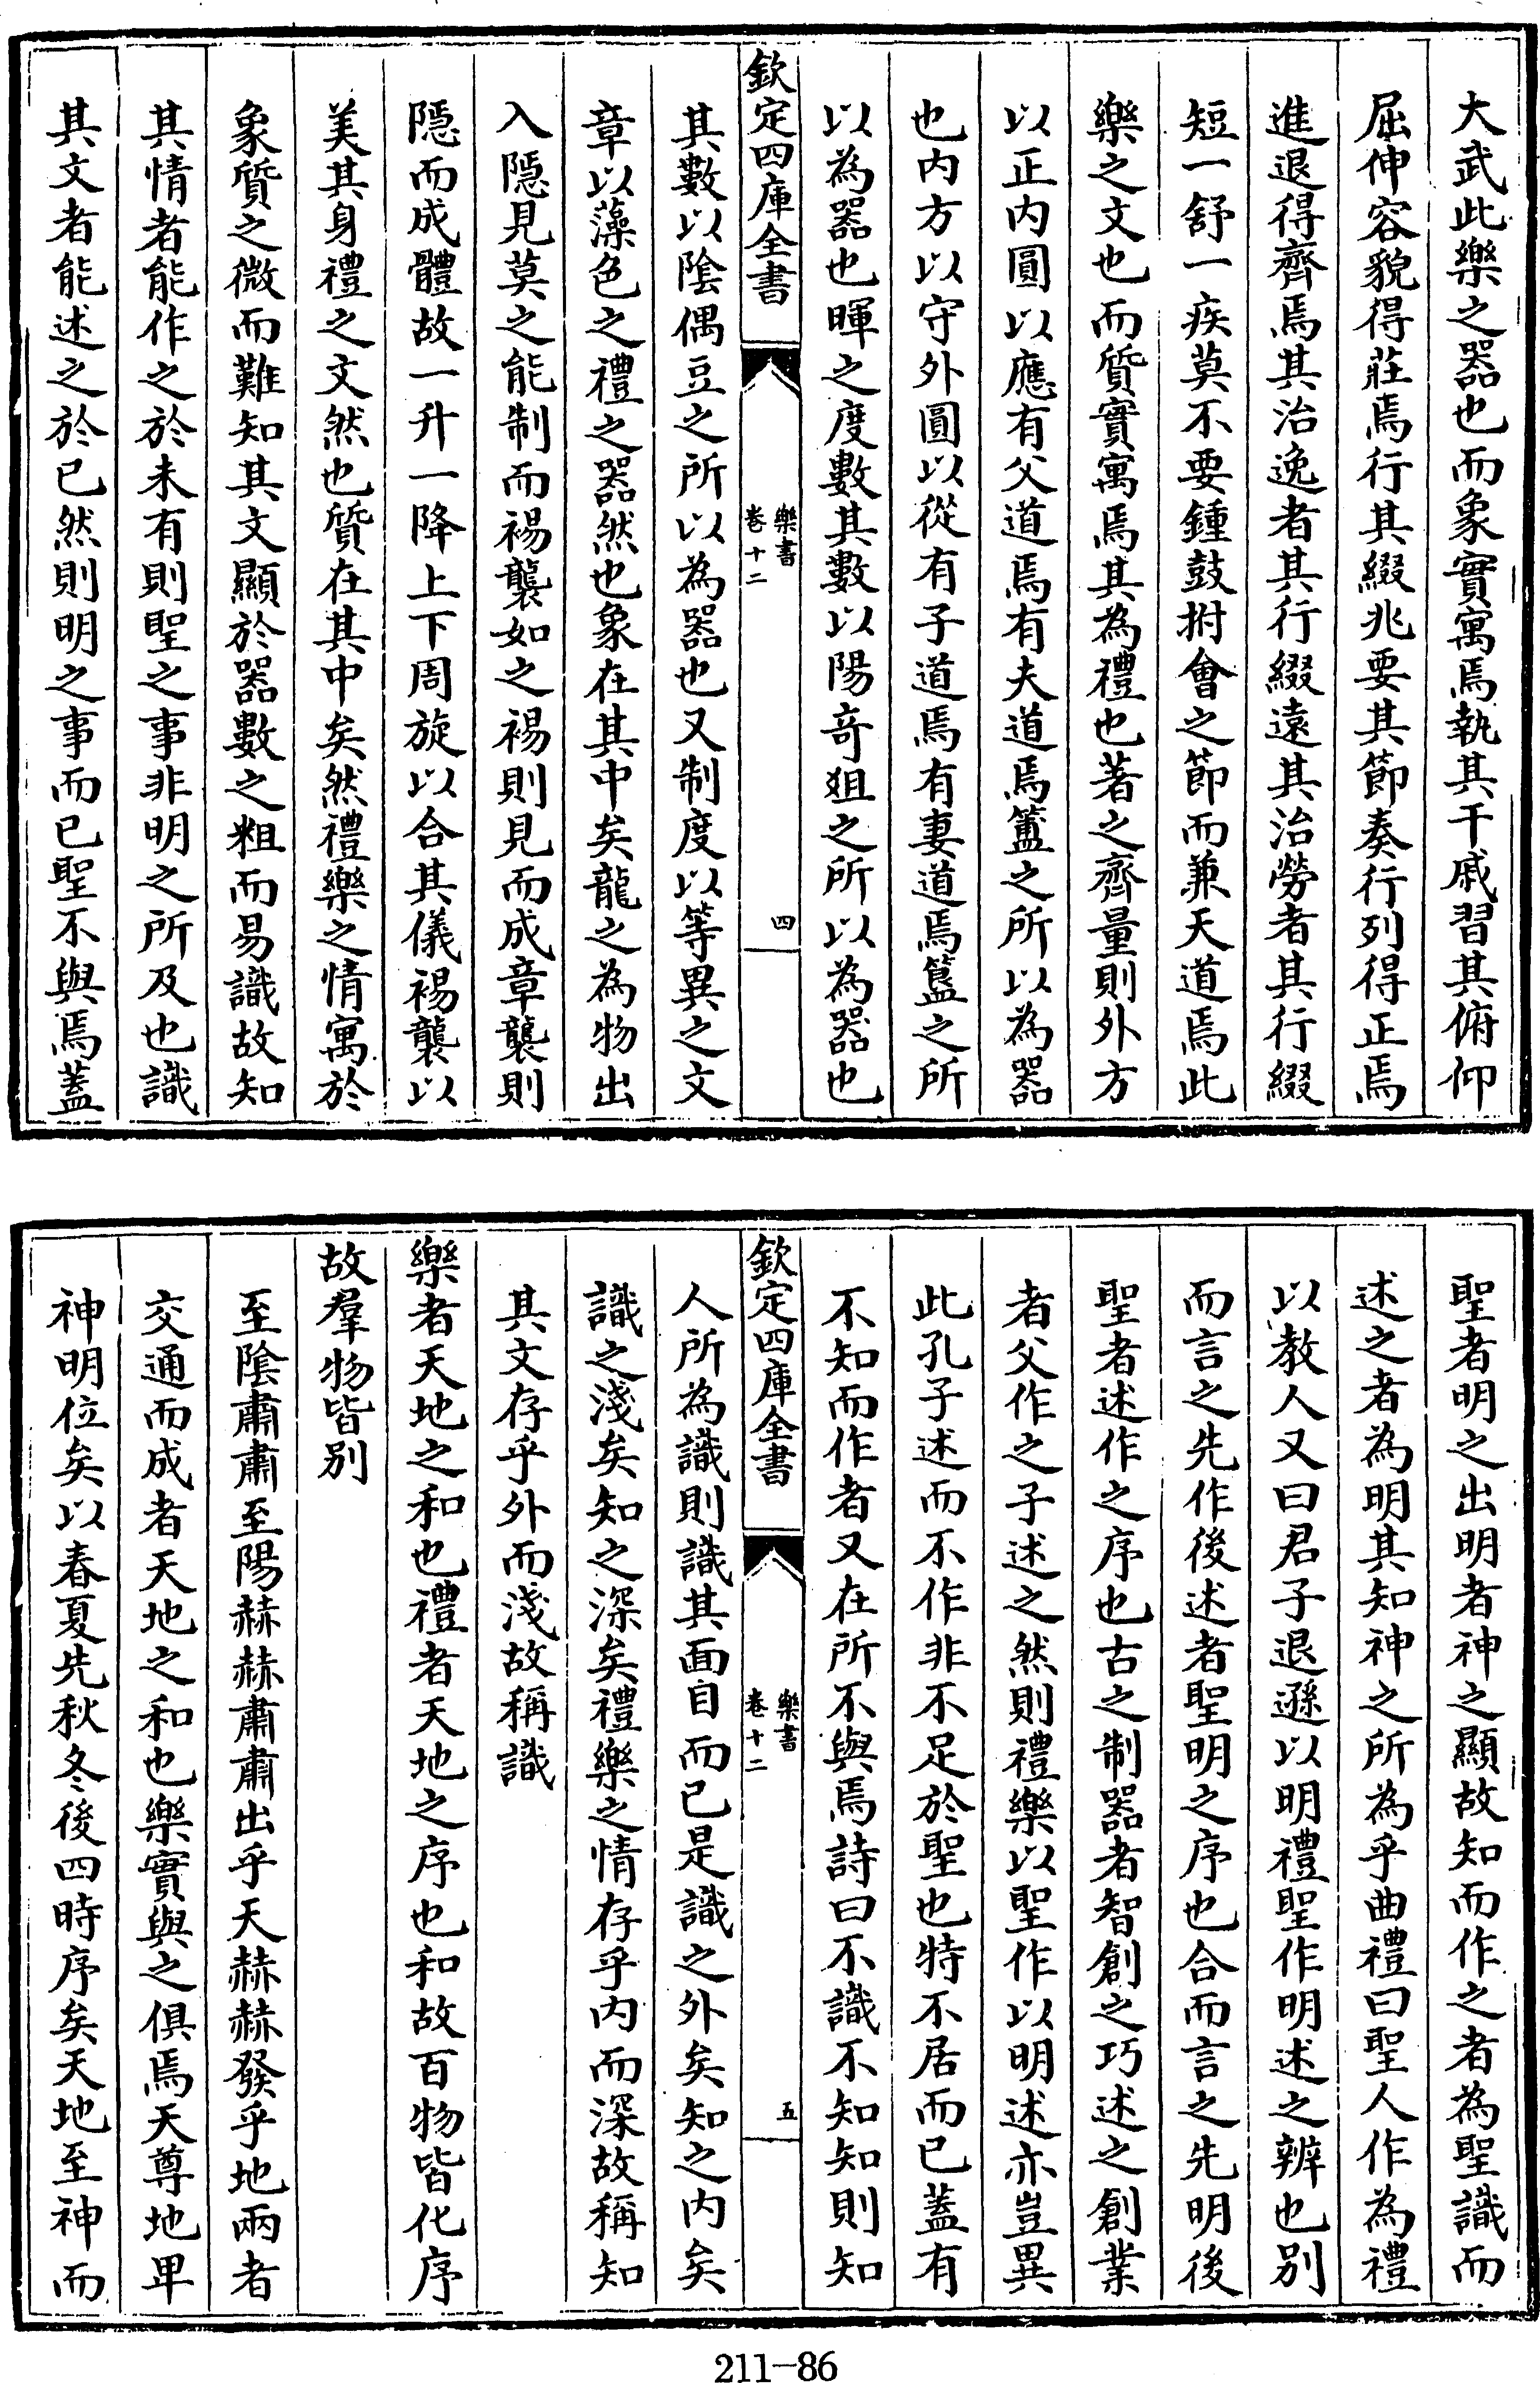 大武此樂之器也而象實寓焉執其干戚習其俯仰
屈伸容貌得莊焉行其綴兆要其節奏行列得正焉
進退得齊焉其治逸者其行綴遠其治勞者其行綴
短一舒一疾莫不要鍾鼓拊會之節而兼天道焉此
樂之文也而質實寓焉其為禮也著之齊量則外方
以正内圓以應有父道焉有夫道焉簠之所以為器
也内方以守外圓以從有子道焉有妻道焉簋之所
以為器也暉之度數其數以陽竒俎之所以為器也
欽定四庫全書
樂書
卷十二
四
其數以陰偶豆之所以為器也又制度以等異之文
章以藻色之禮之器然也象在其中矣龍之為物出
入隠見莫之能制而裼襲如之裼則見而成章襲則
隠而成體故一升一降上下周旋以合其儀裼襲以
美其身禮之文然也質在其中矣然禮樂之情寓於
象質之微而難知其文顯於器數之粗而易識故知
其情者能作之於未有則聖之事非明之所及也識
其文者能述之於已然則明之事而已聖不與焉蓋
聖者明之出明者神之顯故知而作之者為聖識而
述之者為明其知神之所為乎曲禮曰聖人作為禮
以教人又曰君子退遜以明禮聖作明述之辨也别
而言之先作後述者聖明之序也合而言之先明後
聖者述作之序也古之制器者智創之巧述之創業
者父作之子述之然則禮樂以聖作以明述亦豈異
此孔子述而不作非不足於聖也特不居而已蓋有
不知而作者又在所不與焉詩曰不識不知知則知
欽定四庫全書
樂書
卷十二
五
人所為識則識其面目而已是識之外矣知之内矣
識之淺矣知之深矣禮樂之情存乎内而深故稱知
其文存乎外而淺故稱識
樂者天地之和也禮者天地之序也和故百物皆化序
故羣物皆别
至陰肅肅至陽赫赫肅肅出乎天赫赫發乎地兩者
交通而成者天地之和也樂實與之俱焉天尊地卑
神明位矣以春夏先秋冬後四時序矣天地至神而
211-86